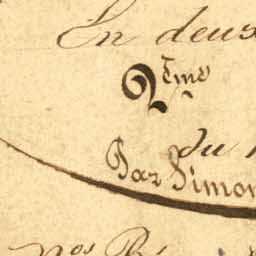 En deux
2ème
du
Par Simon
nos